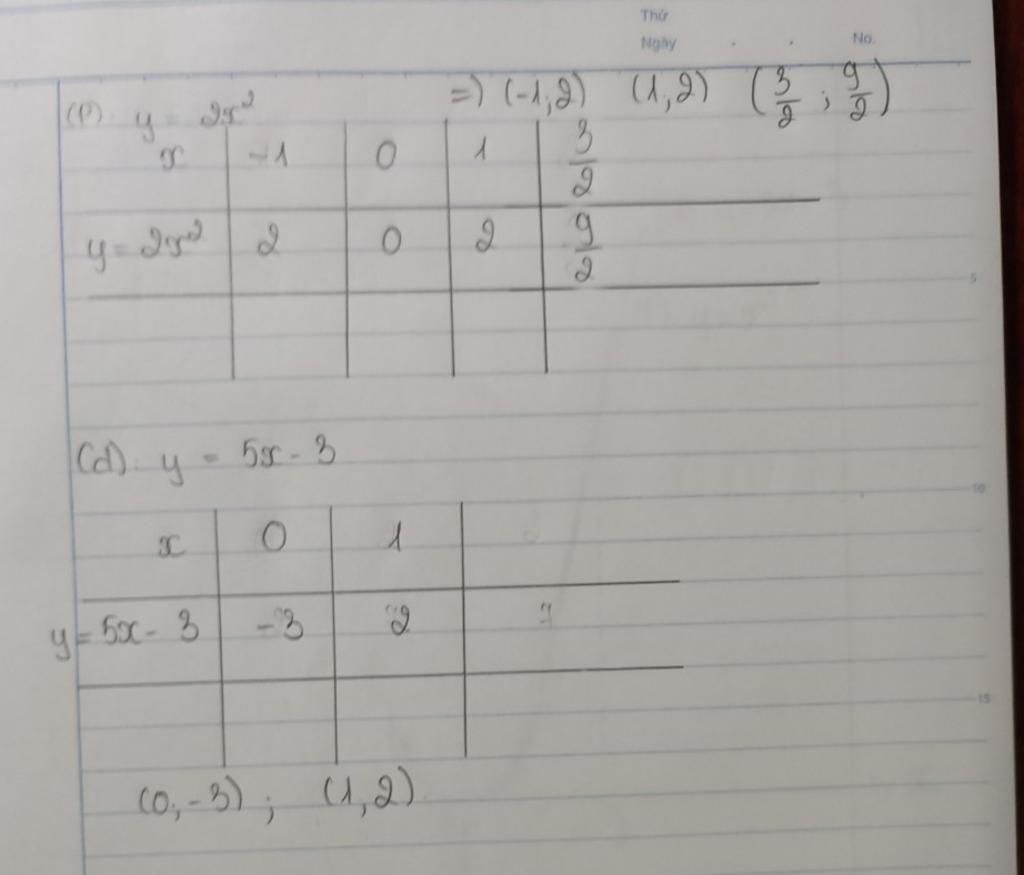 Thứ
Ngày . . No.
(P): y = 2x² => (-1;2) (1,2) (3/2 ; 9/2)
x -1 0 1 3/2
y = 2x² 2 0 2 9/2
5
(d): y = 5x - 3
10
x 0 1
y = 5x - 3 -3 2
15
(0,-3) ; (1,2)